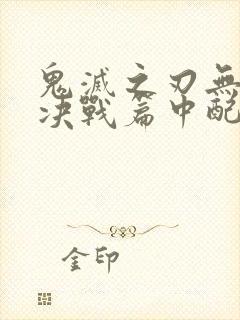 鬼滅之刃無
决戰篇中配
金印